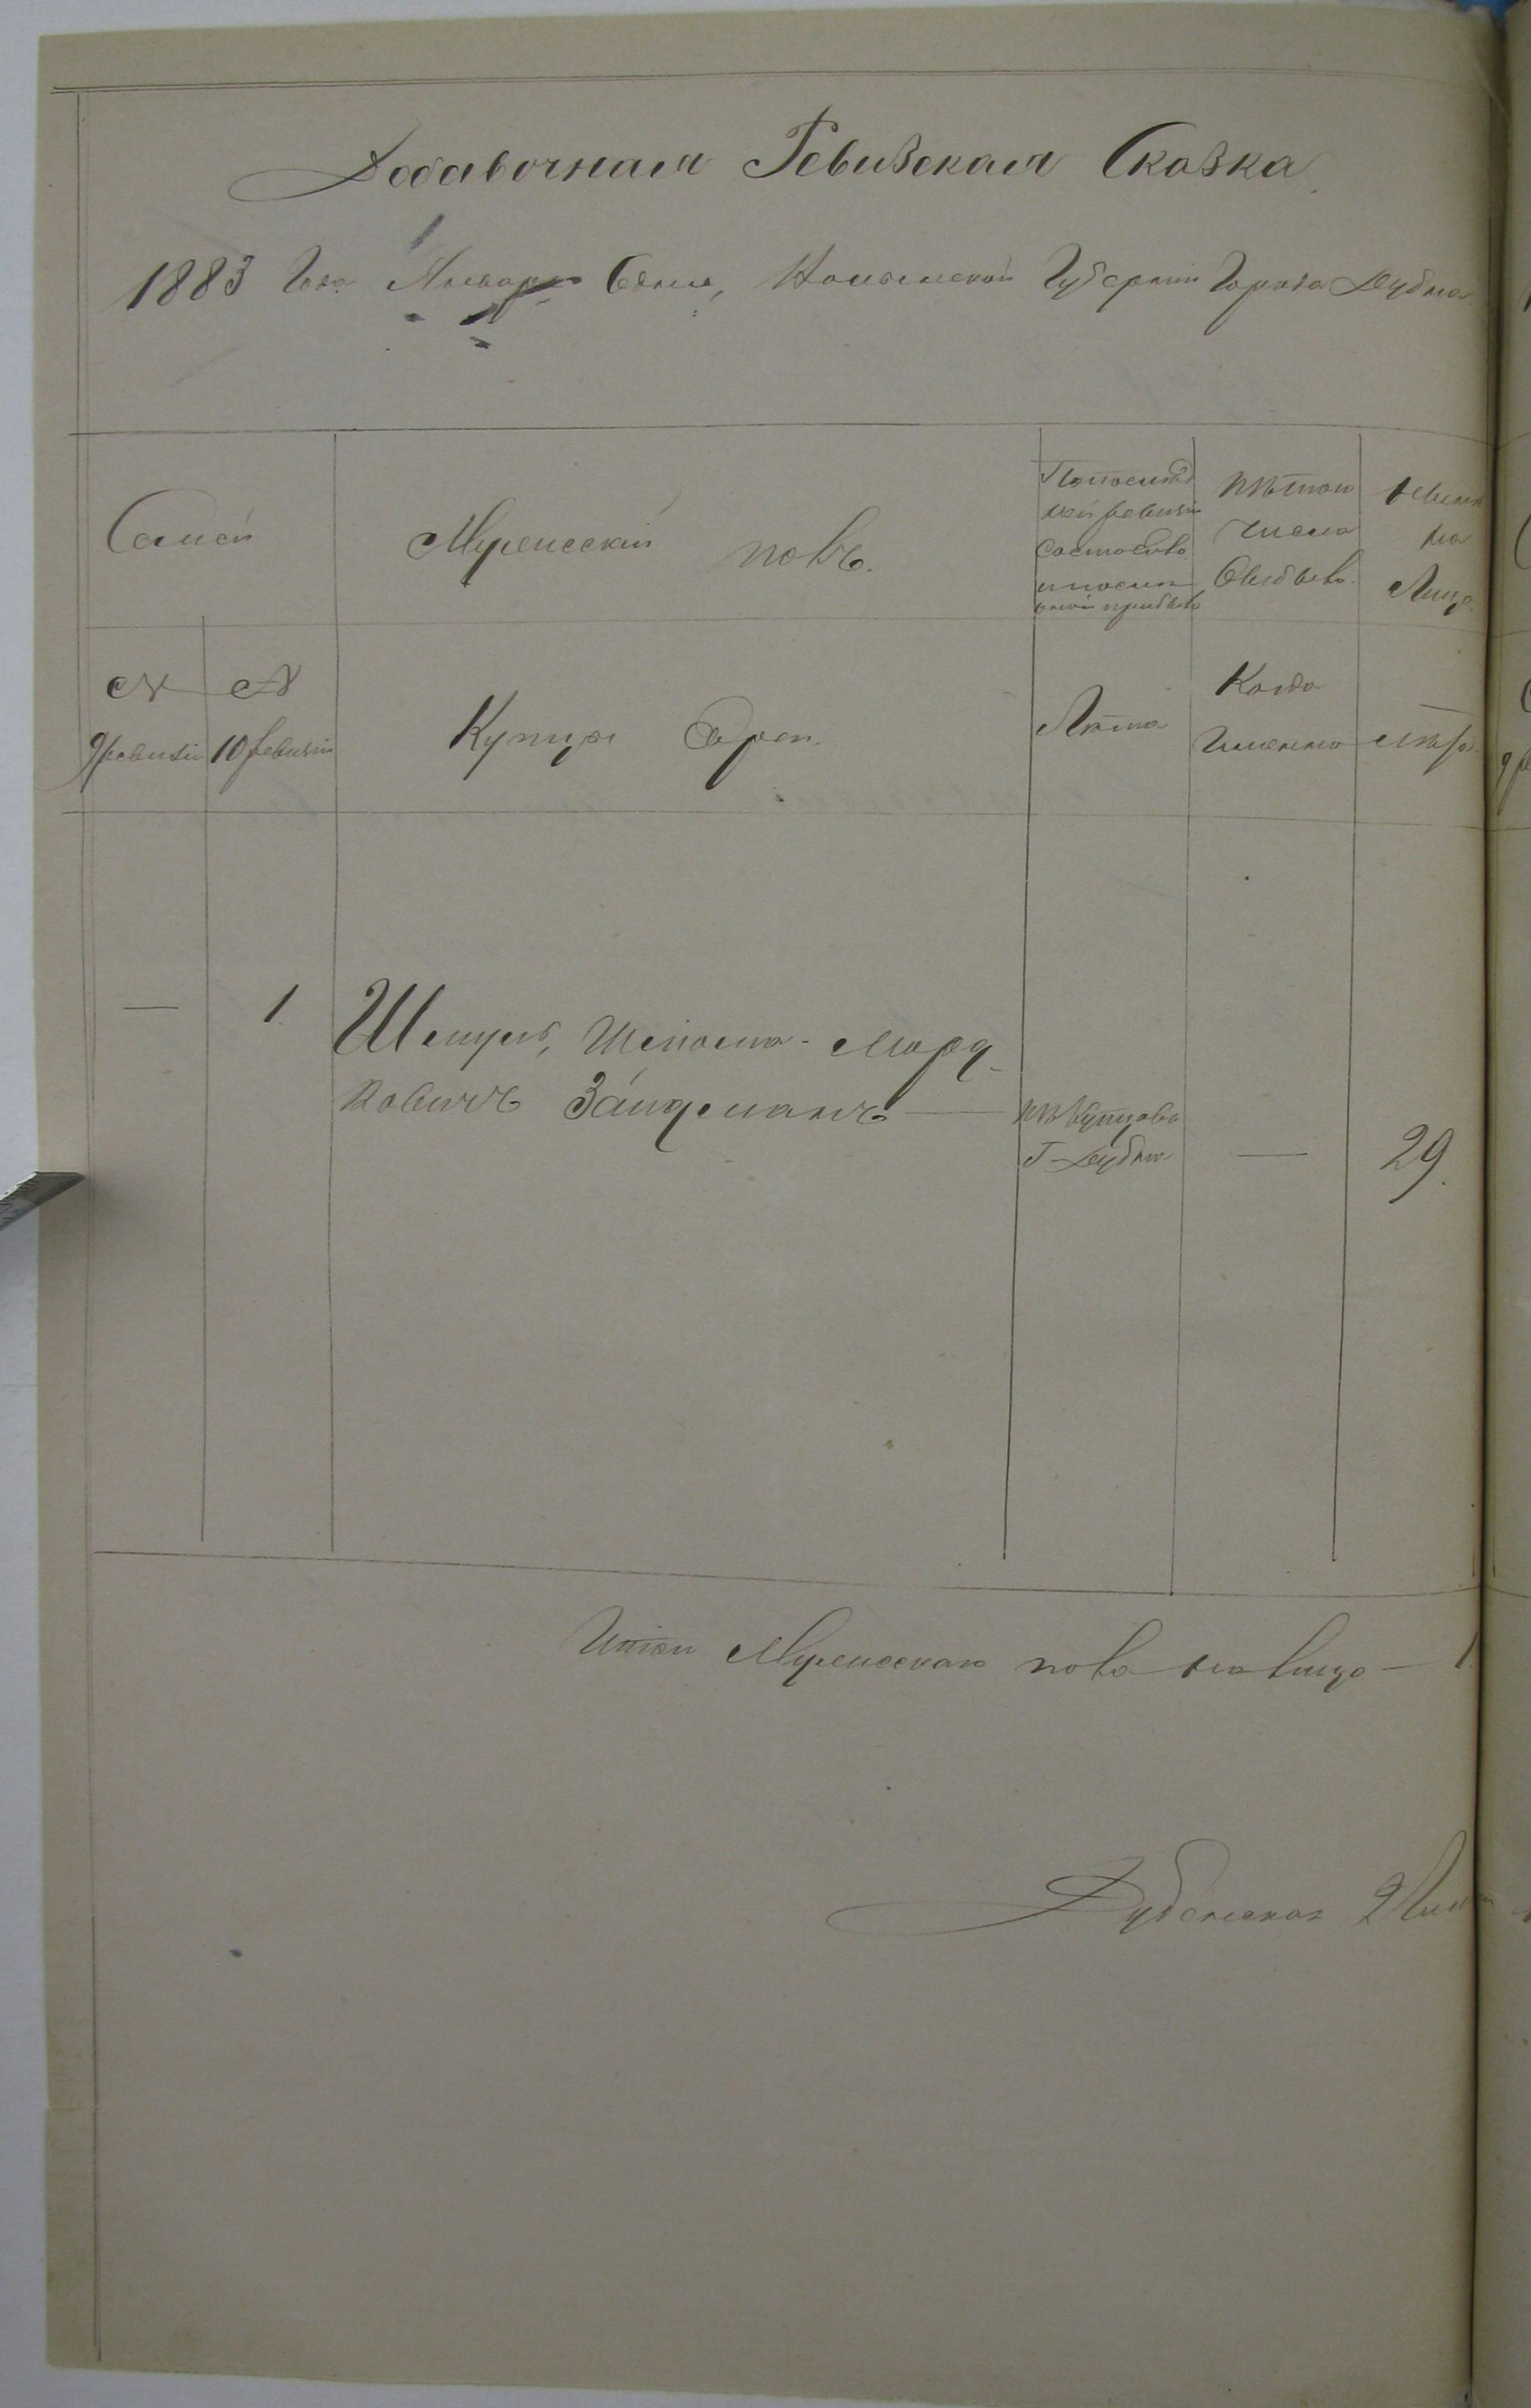 Добавочная Ревизская Сказка
1883 Года Января дня, Волынской Губерніи Города Дубна
Семей
Мужескій полъ.
По послѣд
ней ревизіи
состояло
и послѣ
оной прибыло
Изъ того
числа
Выбыло
Нынѣ
на
Лицо
№ №
9 ревизіи 10 ревизіи
Купцы Евреи.
Лѣта
Когда
Именно
Лѣта
— 1 Шмуль, Шліома-Морд-
ковичъ Зайдеманъ —
изъ Купцовъ
Г. Дубна
—
29.
Итого Мужескаго пола на лицо — 1
Дубенская